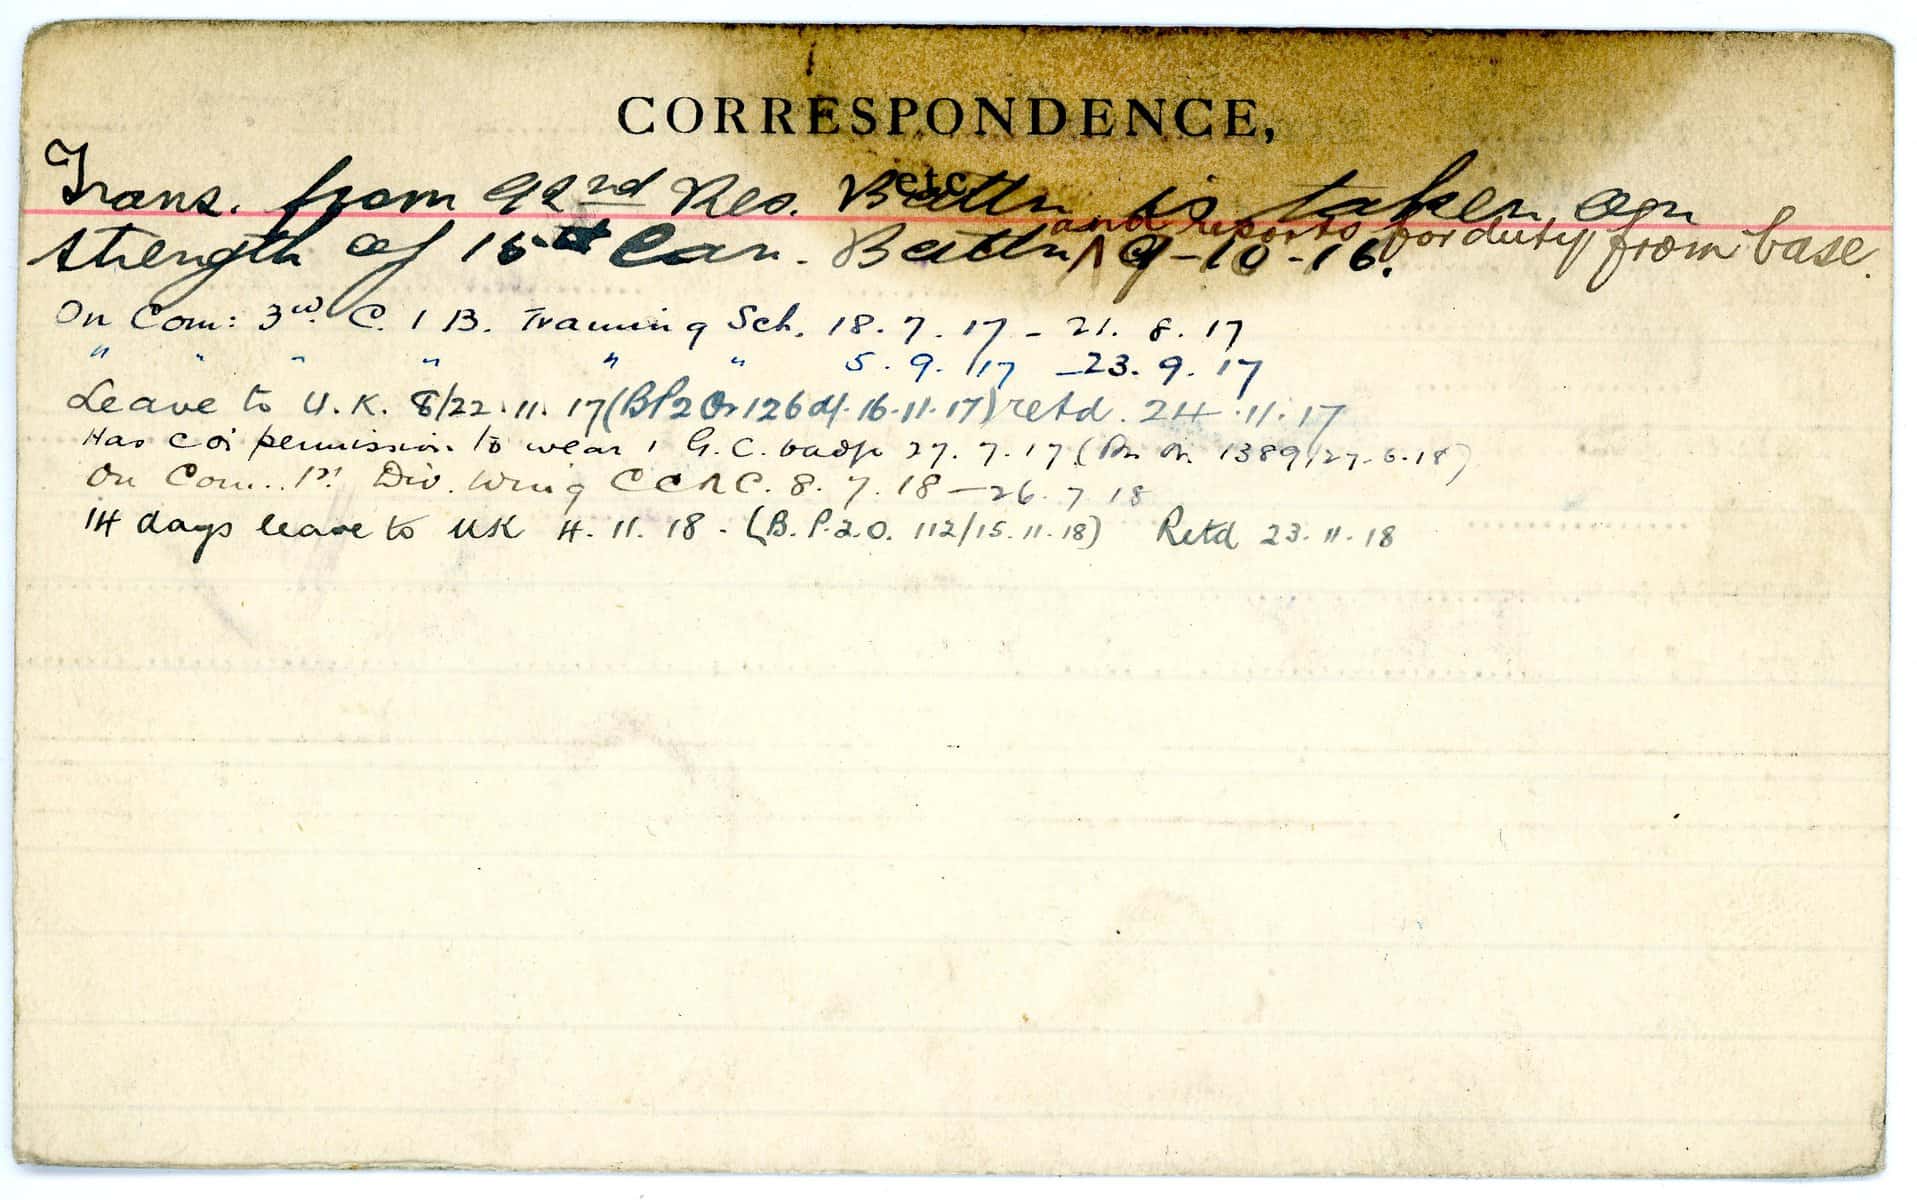 CORRESPONDENCE,
etc.
Trans. from 92nd Res. Battn is taken on
and reports for duty from base.
strength of 15th Can. Battn ∧ 9-10-16.
On Com: 3rd. C. I B. Training Sch. 18.7.17 - 21.8.17
" " " " " " 5.9.17 - 23.9.17
Leave to U.K. 8/22.11.17 (BP2 Or 126 d/. 16.11.17) retd. 24.11.17
Has CO's permission to wear 1 G.C. badge 27.7.17 (Bn Or. 1389/27.6.18)
On Com.. 1st Div. Wing CCRC. 8.7.18 - 26.7.18
14 days leave to UK 4.11.18 - (B.P.2.O. 112/15.11.18) Retd 23.11.18